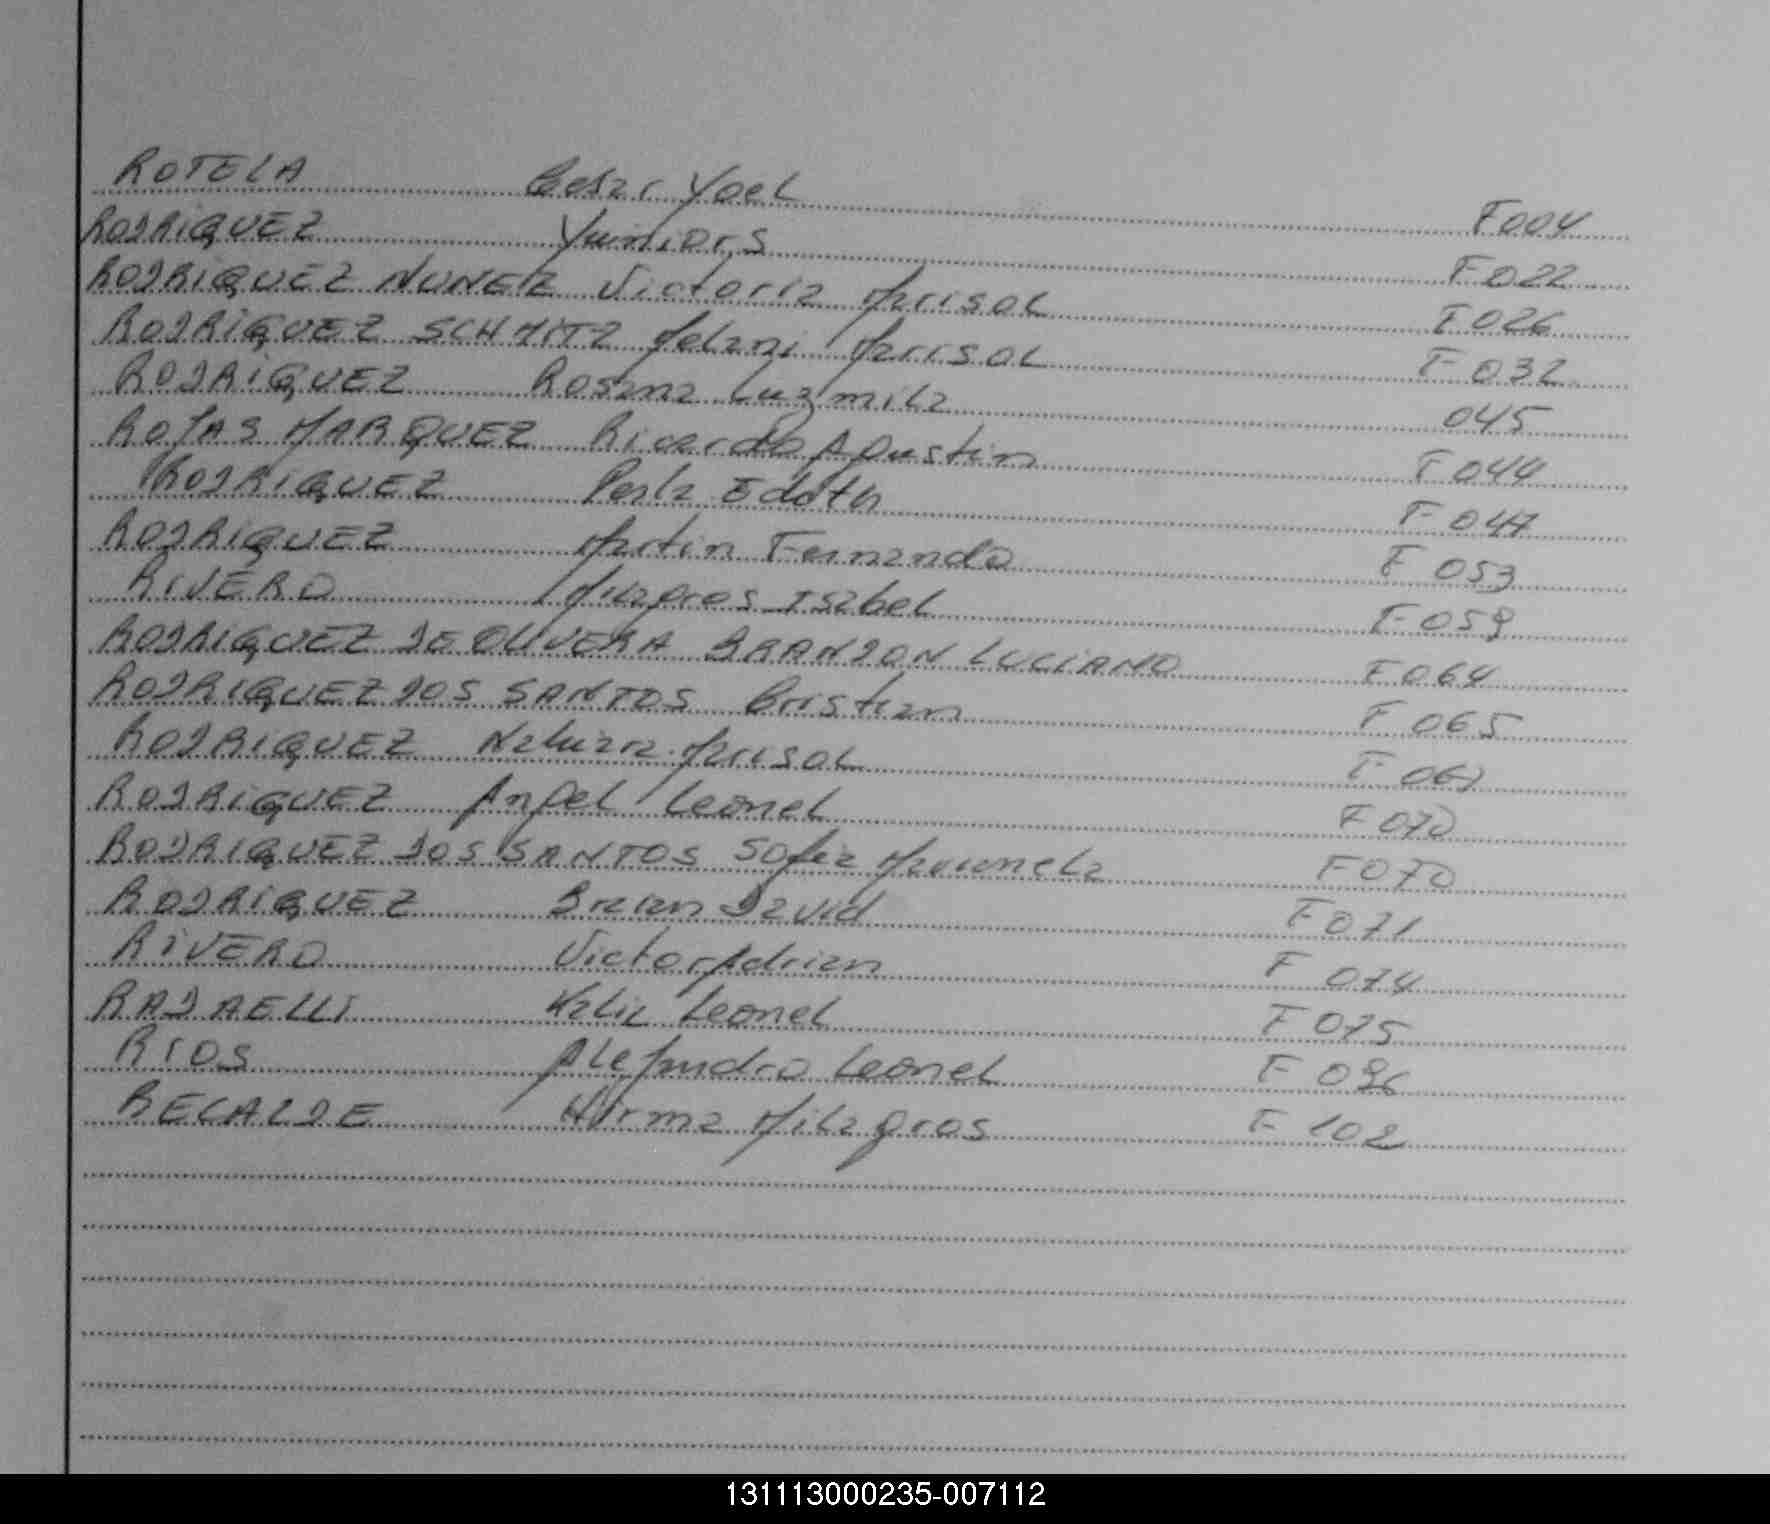 ROTELA Cesar Yoel F004
RODRIGUEZ Yuniors F022
RODRIGUEZ NUNEZ Victoria Marisol F026
RODRIGUEZ SCHMITZ Melani Marisol F032
RODRIGUEZ Rosana Luzmila 045
ROJAS MARQUEZ Ricardo Agustin F044
RODRIGUEZ Perla Edith F047
RODRIGUEZ Martin Fernando F053
RIVERO Milagros Isabel F059
RODRIGUEZ DE OLIVERA BRANDON LUCIANO F064
RODRIGUEZ DOS SANTOS Cristian F065
RODRIGUEZ Nahiara Marisol
RODRIGUEZ Angel Leonel F070
RODRIGUEZ DOS SANTOS Sofia F070
RODRIGUEZ Braian David F071
RIVERO Victor Adrian F074
RADAELLI Leonel F075
RIOS Alejandro Leonel
RECALDE Milagros F102
131113000235-007112